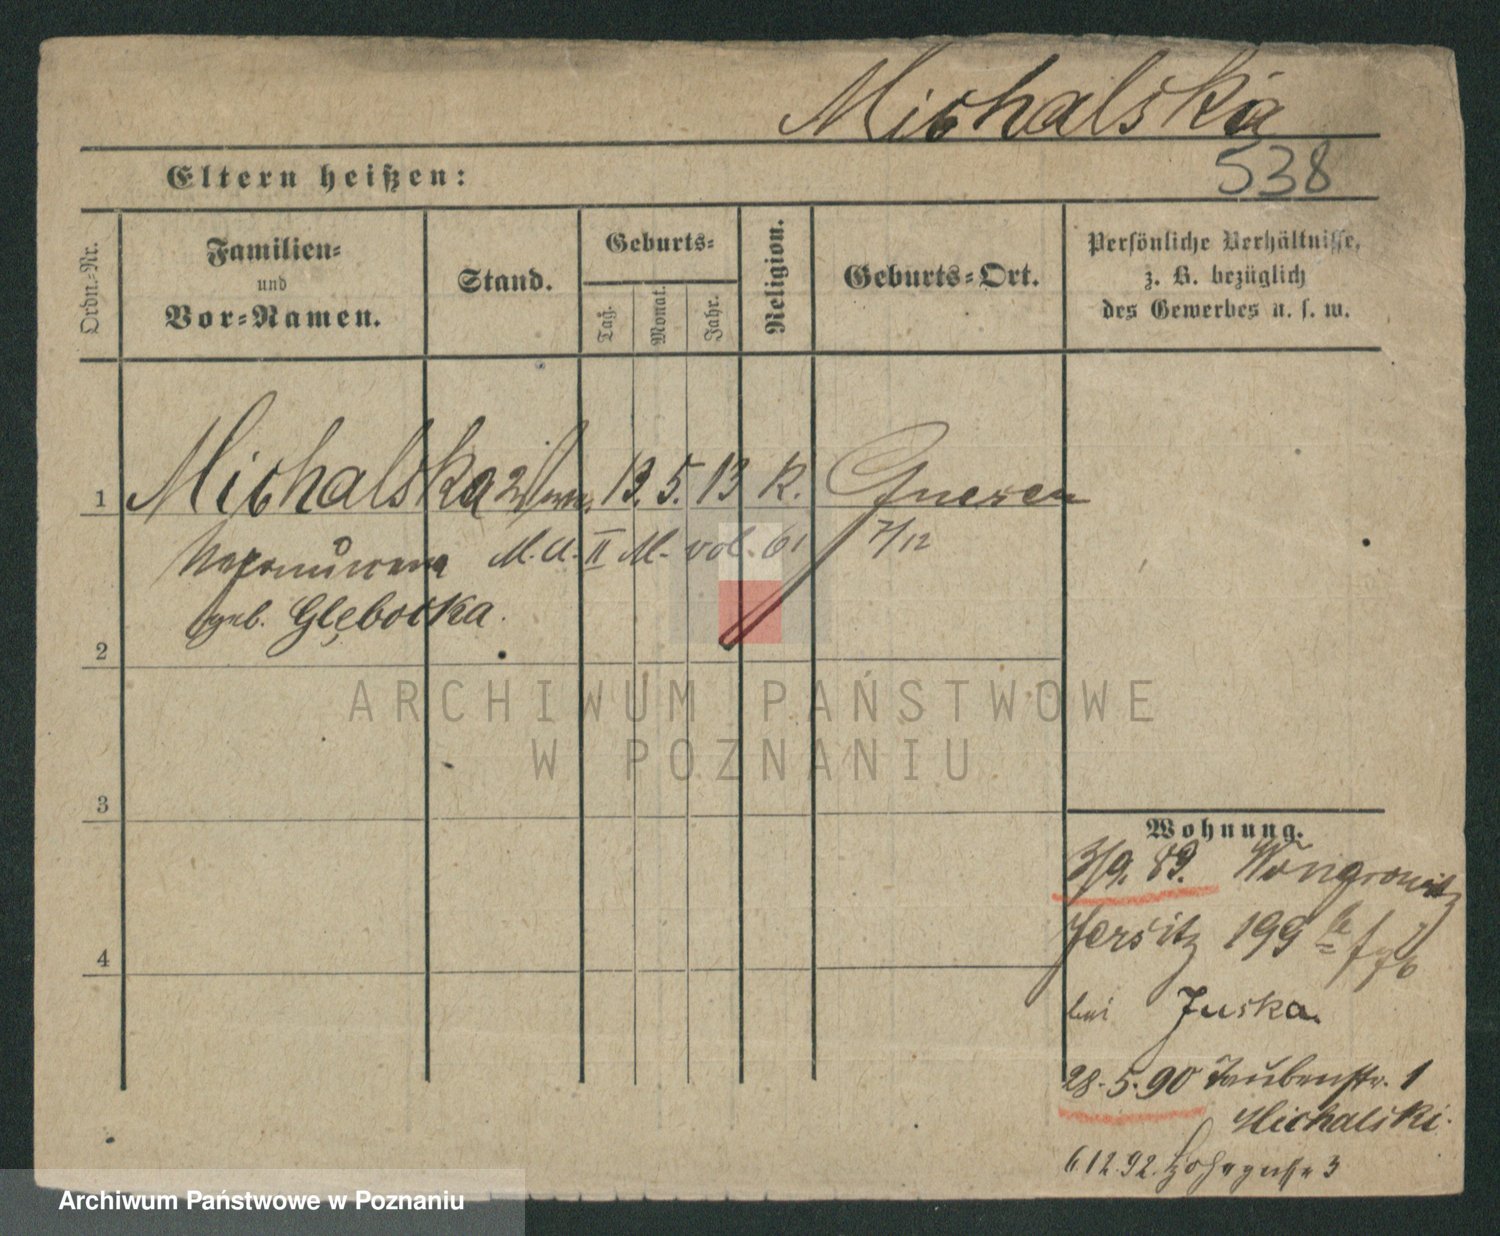 Michalska
538
Eltern heißen:
Ordn.-Nr.
Familien-
und
Vor-Namen.
Stand.
Geburts-
Tag.
Monat.
Jahr.
Religion.
Geburts-Ort.
Persönliche Verhältnisse,
z. B. bezüglich
des Gewerbes u. s. w.
1 Michalska 13. 5. 13 K. Gnesen
M. A. II M. vol. 61 7/12
geb. Głębocka.
2
3
4
Wohnung.
3/9. 89. Wongrowitz
Jersitz 199
bei Juska
28.5.90 Taubenstr. 1
Michalski.
6.12.92. 3
ARCHIWUM PAŃSTWOWE
W POZNANIU
Archiwum Państwowe w Poznaniu